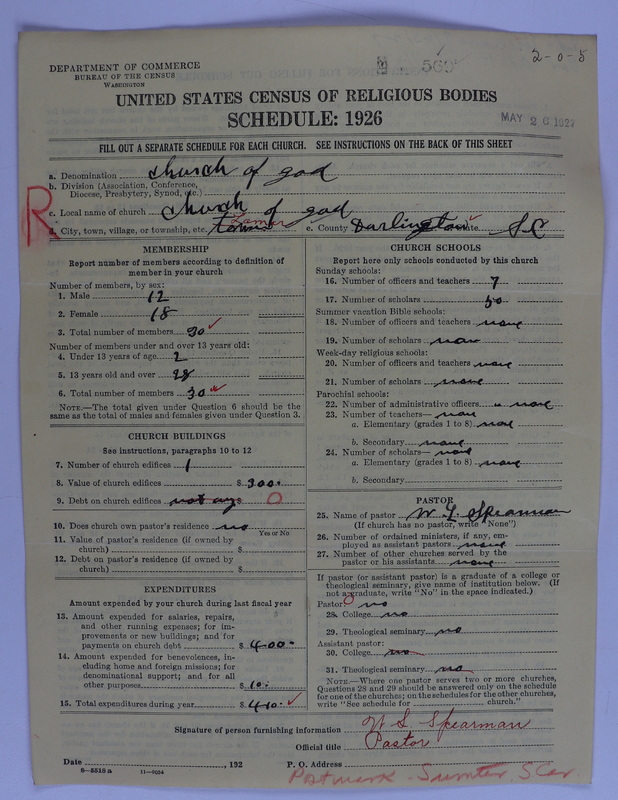 2-0-5
DEPARTMENT OF COMMERCE
BUREAU OF THE CENSUS
WASHINGTON
UNITED STATES CENSUS OF RELIGIOUS BODIES
SCHEDULE: 1926
MAY 26 1927
FILL OUT A SEPARATE SCHEDULE FOR EACH CHURCH. SEE INSTRUCTIONS ON THE BACK OF THIS SHEET
a. Denomination church of god
b. Division (Association, Conference,
Diocese, Presbytery, Synod, etc.)
R
c. Local name of church church of god
d. City, town, village, or township, etc. Lamar e. County Darlington State S C
MEMBERSHIP
Report number of members according to definition of
member in your church
Number of members, by sex:
1. Male 12
2. Female 18
3. Total number of members 30
Number of members under and over 13 years old:
4. Under 13 years of age 2
5. 13 years old and over 28
6. Total number of members 30
NOTE.—The total given under Question 6 should be the
same as the total of males and females given under Question 3.
CHURCH BUILDINGS
See instructions, paragraphs 10 to 12
7. Number of church edifices 1
8. Value of church edifices $ 300.
9. Debt on church edifices not any $ 0
10. Does church own pastor's residence no
Yes or No
11. Value of pastor's residence (if owned by
church) $
12. Debt on pastor's residence (if owned by
church) $
EXPENDITURES
Amount expended by your church during last fiscal year
13. Amount expended for salaries, repairs,
and other running expenses; for im-
provements or new buildings; and for
payments on church debt $ 400.
14. Amount expended for benevolences, in-
cluding home and foreign missions; for
denominational support; and for all
other purposes $ 10.
15. Total expenditures during year $ 410.
CHURCH SCHOOLS
Report here only schools conducted by this church
Sunday schools:
16. Number of officers and teachers 7
17. Number of scholars 50
Summer vacation Bible schools:
18. Number of officers and teachers none
19. Number of scholars none
Week-day religious schools:
20. Number of officers and teachers none
21. Number of scholars none
Parochial schools:
22. Number of administrative officers none
23. Number of teachers— none
a. Elementary (grades 1 to 8) none
b. Secondary none
24. Number of scholars— none
a. Elementary (grades 1 to 8) none
b. Secondary
PASTOR
25. Name of pastor W L Spearman
(If church has no pastor, write "None")
26. Number of ordained ministers, if any, em-
ployed as assistant pastors none
27. Number of other churches served by the
pastor or his assistants none
If pastor (or assistant pastor) is a graduate of a college or
theological seminary, give name of institution below. (If
not a graduate, write "No" in the space indicated.)
Pastor: no
28. College no
29. Theological seminary no
Assistant pastor:
30. College no
31. Theological seminary no
NOTE.—Where one pastor serves two or more churches,
Questions 28 and 29 should be answered only on the schedule
for one of the churches; on the schedules for the other churches,
write "See schedule for church."
Signature of person furnishing information W L Spearman
Official title Pastor
Date , 192 P. O. Address
8—5518 a 11—9034
Postmark - Sumter, S Car.